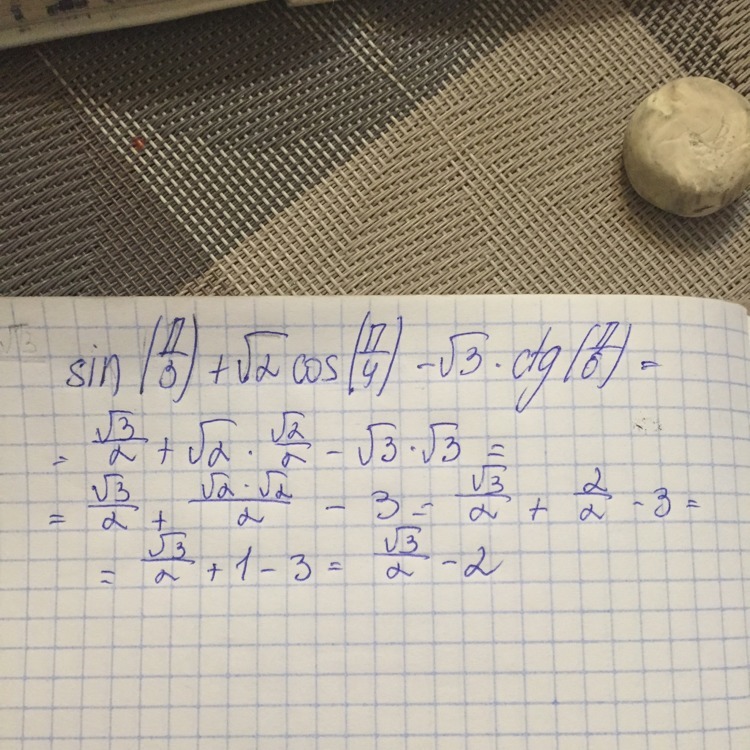 √3
sin(π/3) + √2 cos(π/4) - √3 · ctg(π/6) =
= √3/2 + √2 · √2/2 - √3 · √3 =
= √3/2 + √2 · √2/2 - 3 = √3/2 + 2/2 - 3 =
= √3/2 + 1 - 3 = √3/2 - 2